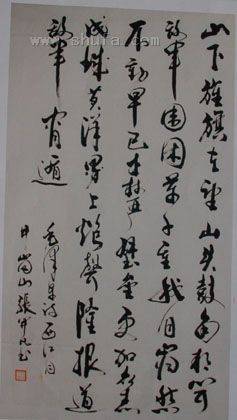 山下旌旗在望山头鼓角相闻
敌军围困萬千重我自岿然
不动早已森严壁垒更加众志
成城黄洋界上炮聲隆报道
敌军宵遁
毛泽东词西江月
井崗山 張